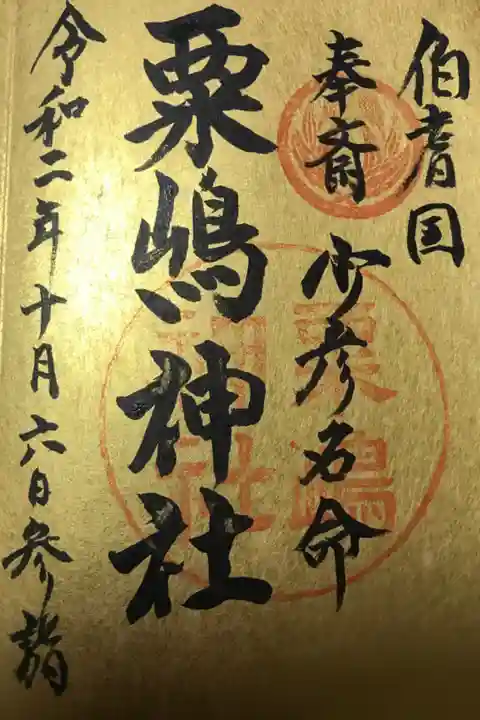 伯耆国
奉斎 少彦名命
粟嶋神社
令和二年十月六日参詣
粟嶋
神社